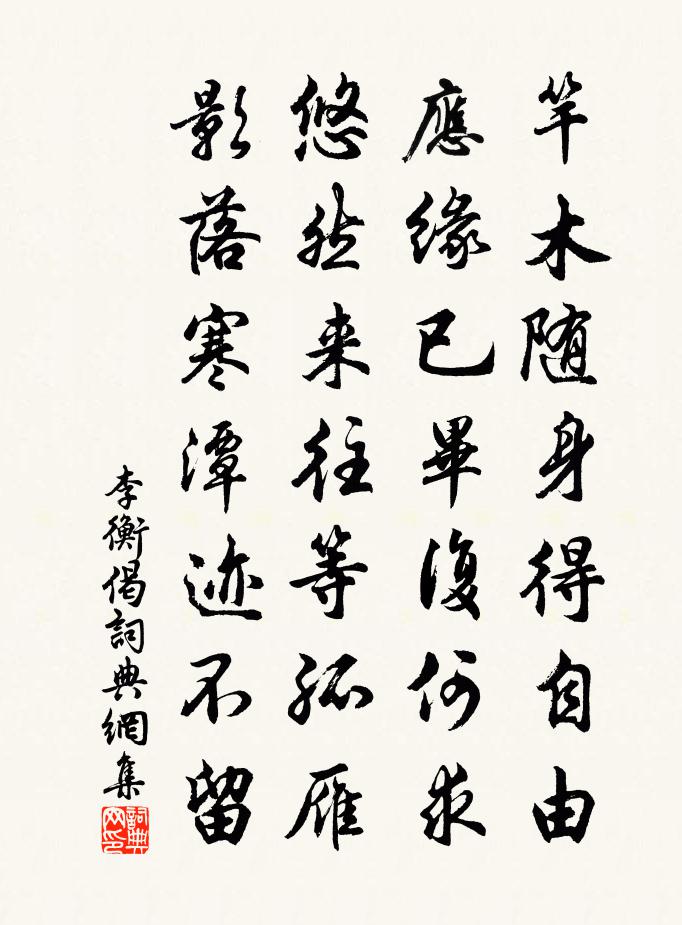 竿木随身得自由
應緣已畢復何求
悠然来往等孤雁
影落寒潭迹不留
李衡偈詞典網集
詞典網印